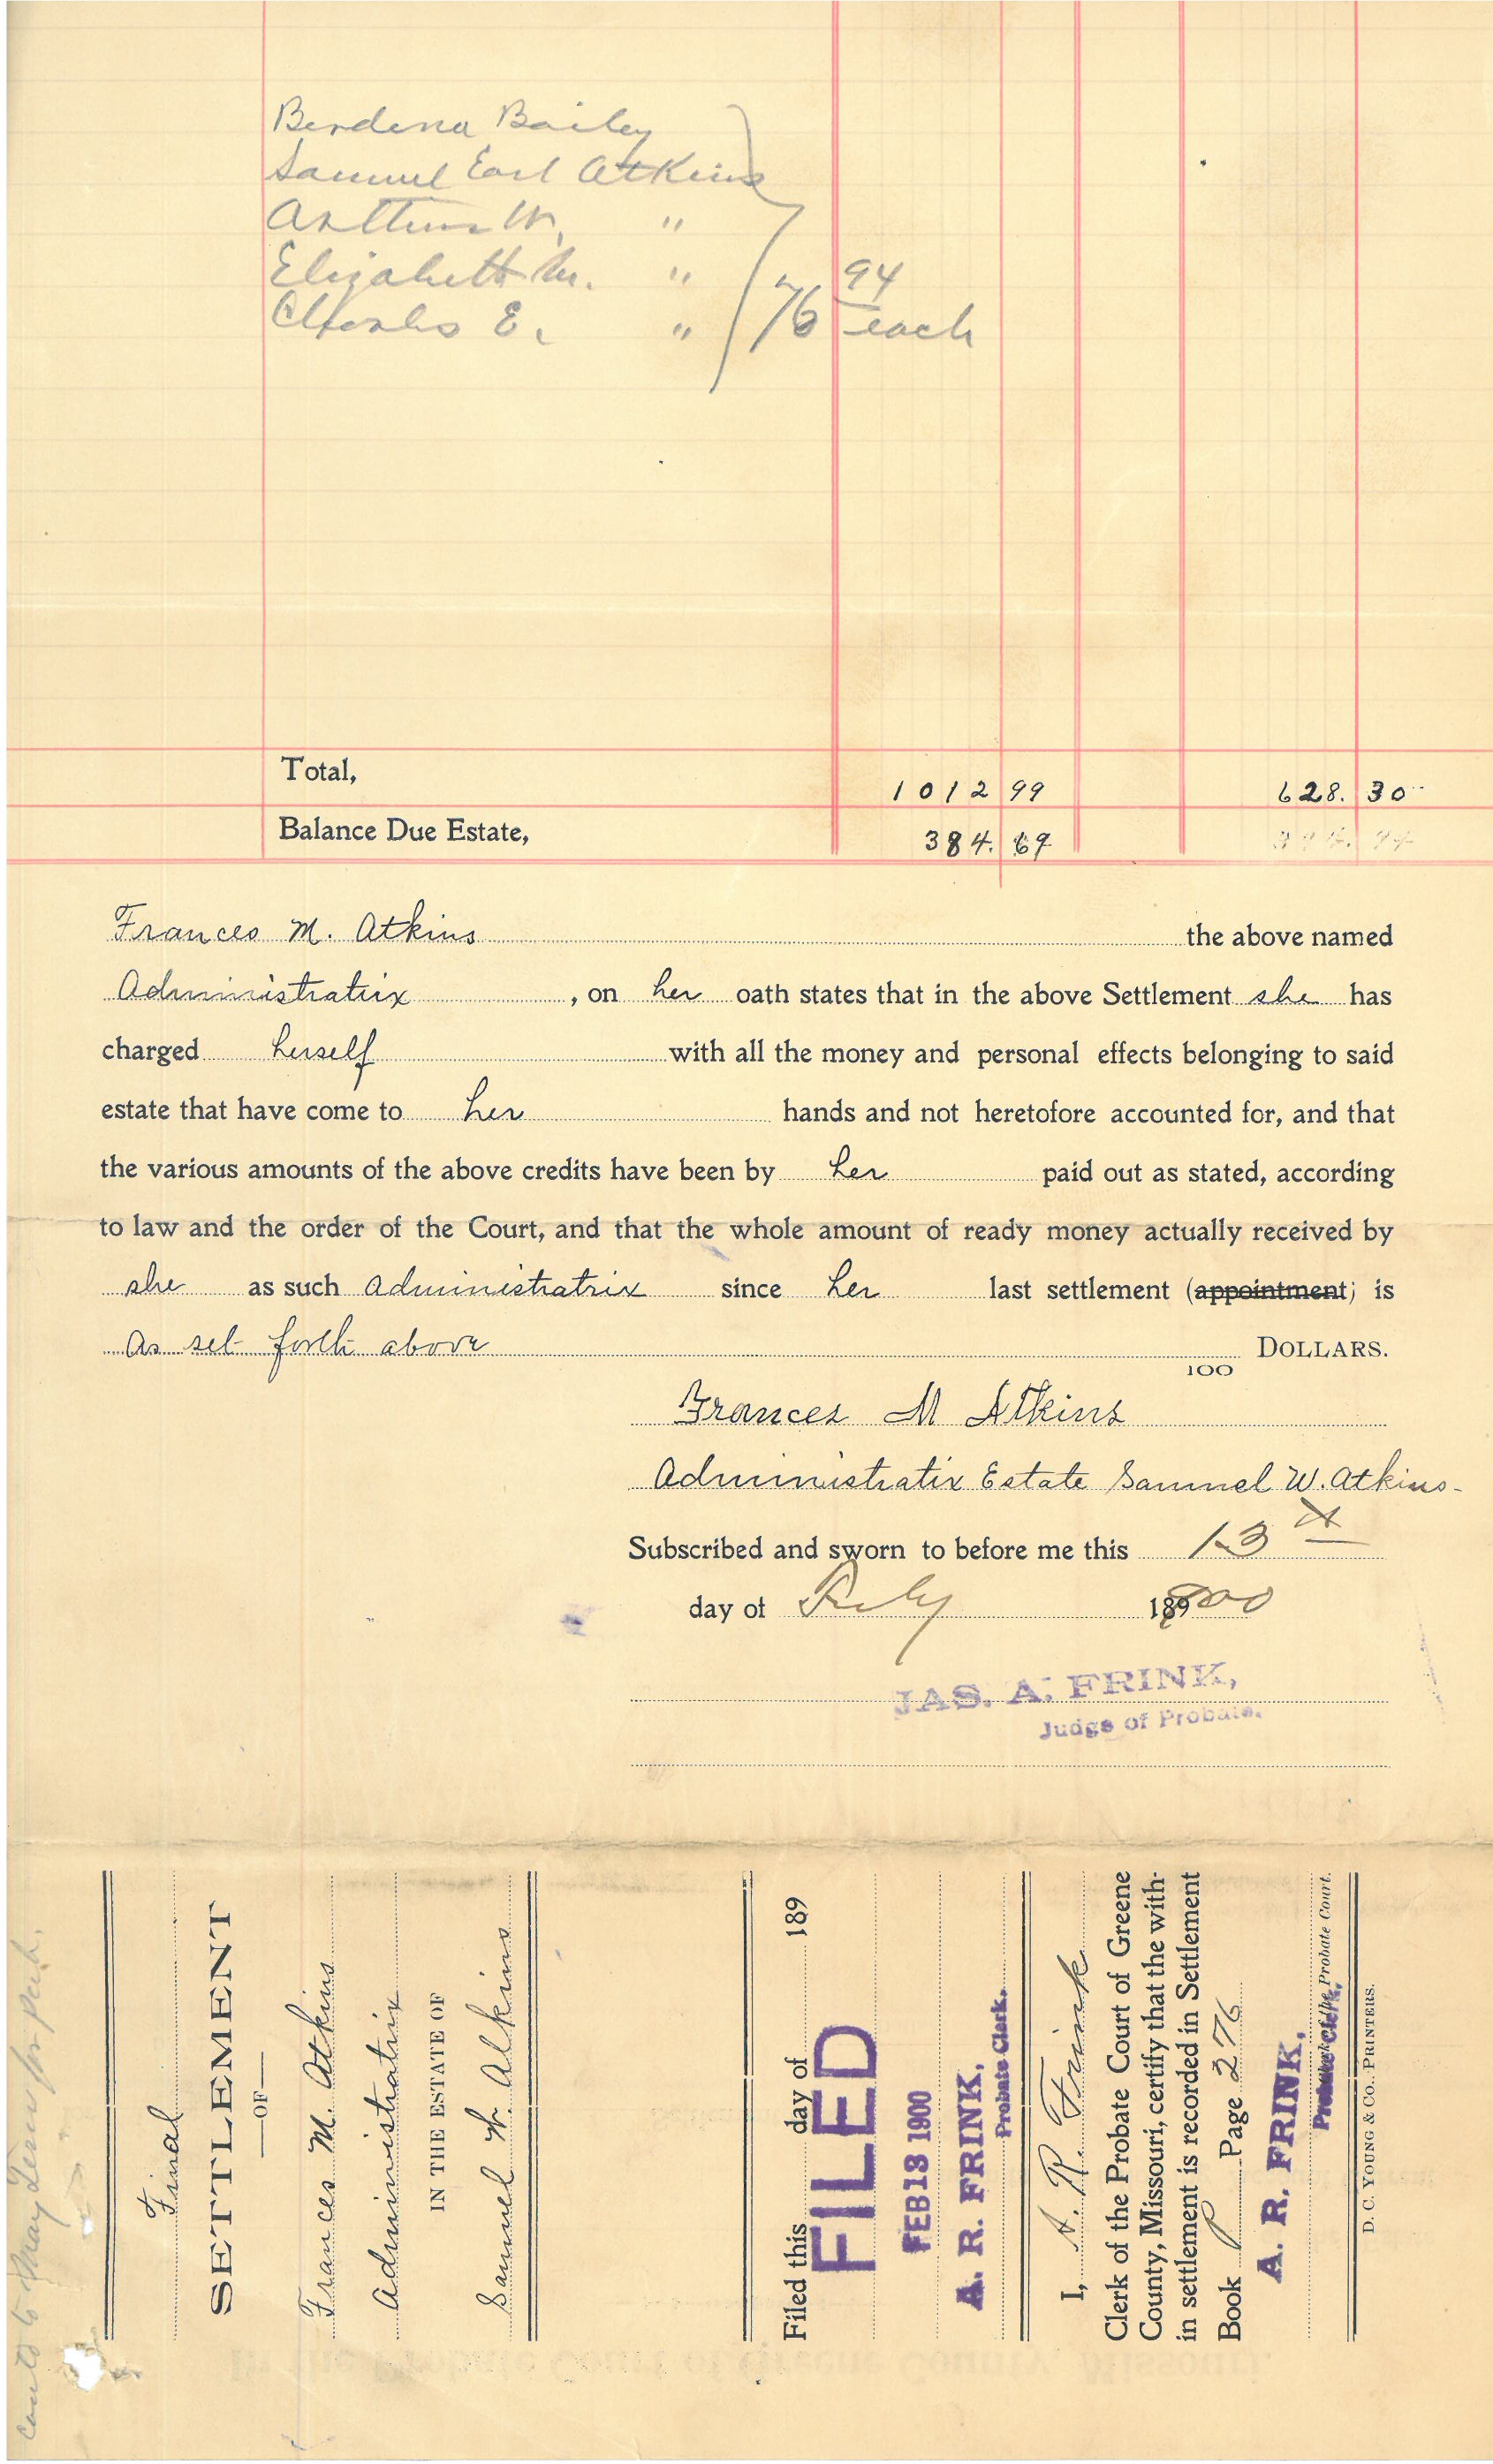 Berdena Bailey
Samuel Earl Atkins
Arthur W. "
Elizabeth M. "
Charles E. " 76 94 each
Total, 1012 99 628. 30
Balance Due Estate, 384. 69
Frances M. Atkins the above named
Administratrix, on her oath states that in the above Settlement she has
charged herself with all the money and personal effects belonging to said
estate that have come to her hands and not heretofore accounted for, and that
the various amounts of the above credits have been by her paid out as stated, according
to law and the order of the Court, and that the whole amount of ready money actually received by
she as such Administratrix since her last settlement (appointment) is
As set forth above 100 DOLLARS.
Frances M Atkins
Administratix Estate Samuel W. Atkins-
Subscribed and sworn to before me this 13
day of 189
JAS. A. FRINK,
Judge of Probate.
Final
SETTLEMENT
—OF—
Frances M. Atkins
Administratrix
IN THE ESTATE OF
Samuel W. Atkins
Filed this day of 189
FILED
FEB 13 1900
A. R. FRINK,
Probate Clerk.
I, A. R. Frink
Clerk of the Probate Court of Greene
County, Missouri, certify that the with-
in settlement is recorded in Settlement
Book P Page 276
A. R. FRINK,
Probate Clerk,
Probate Court.
D. C. YOUNG & CO., PRINTERS.